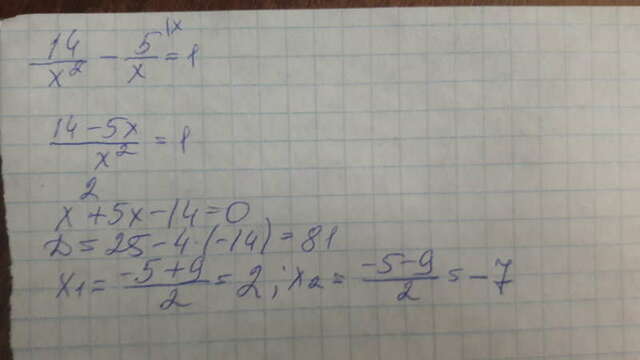 14/x² - 5/x |x = 1
(14-5x)/x² = 1
x²+5x-14=0
D=25-4·(-14)=81
x₁=(-5+9)/2=2; x₂=(-5-9)/2=-7